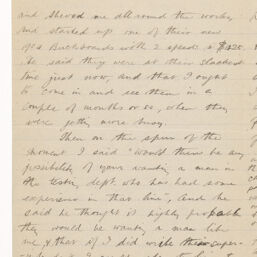 and showed me all round the works,
and started up one of their new
Buckboards with 2 speeds @ $425.
he said they were at their slackest
time just now, and that I ought
to come in and see them in a
couple of months or so, when they
were getting more busy.
Then on the spur of the
moment I said "Would there be any
possibility of your wanting a man in
the testing dept. who has had some
experience in that line", and he
said he thought it highly probable
they would be wanting a man like
me & that if I did write their super-